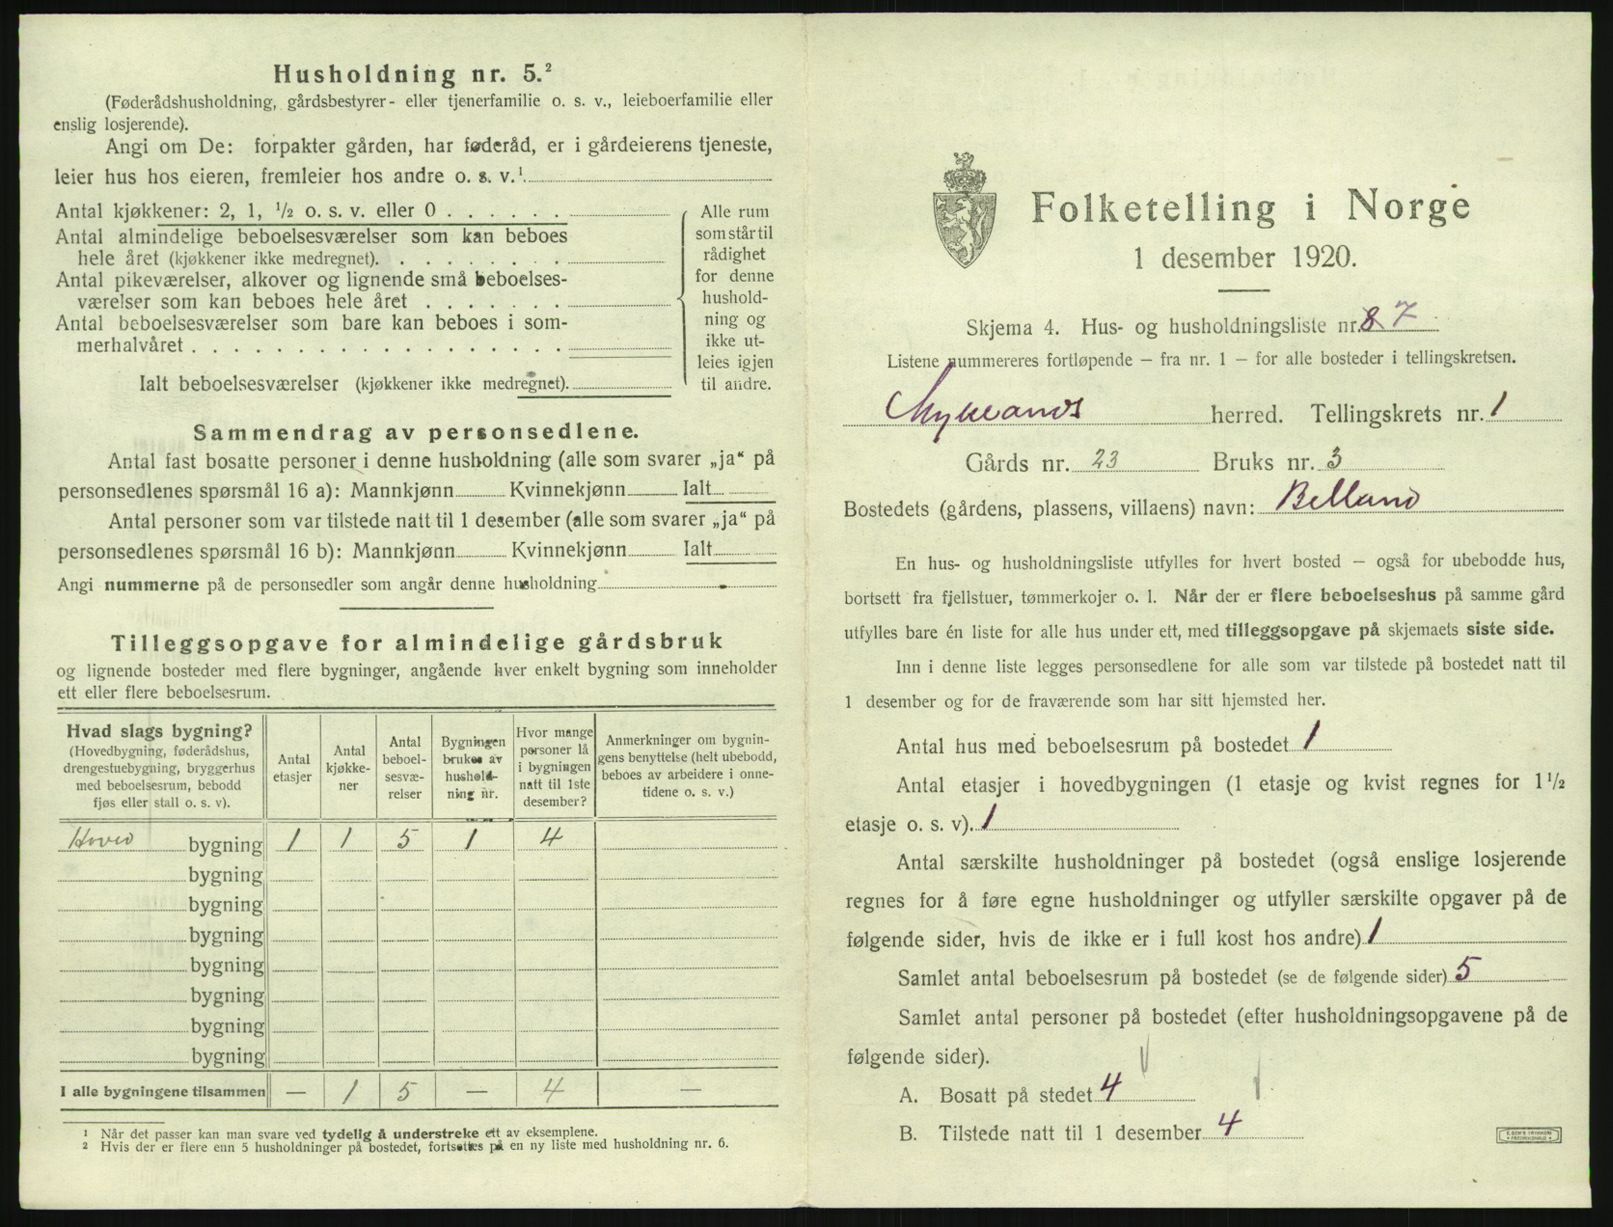 Husholdning nr. 5.²
(Føderådshusholdning, gårdsbestyrer- eller tjenerfamilie o. s. v., leieboerfamilie eller
enslig losjerende).
Angi om De: forpakter gården, har føderåd, er i gårdeierens tjeneste,
leier hus hos eieren, fremleier hos andre o. s. v.¹
Antal kjøkkener: 2, 1, ½ o. s. v. eller 0 . . . . . .
Antal almindelige beboelsesværelser som kan beboes
hele året (kjøkkener ikke medregnet). . . . . . . . .
Antal pikeværelser, alkover og lignende små beboelses-
værelser som kan beboes hele året . . . . . . .
Antal beboelsesværelser som bare kan beboes i som-
merhalvåret . . . . . . . . . . . . . . . . . .
Ialt beboelsesværelser (kjøkkener ikke medregnet).
Alle rum
som står til
rådighet
for denne
hushold-
ning og
ikke ut-
leies igjen
til andre.
Sammendrag av personsedlene.
Antal fast bosatte personer i denne husholdning (alle som svarer „ja“ på
personsedlenes spørsmål 16 a): Mannkjønn Kvinnekjønn Ialt
Antal personer som var tilstede natt til 1 desember (alle som svarer „ja“ på
personsedlenes spørsmål 16 b): Mannkjønn Kvinnekjønn Ialt
Angi nummerne på de personsedler som angår denne husholdning
Tilleggsopgave for almindelige gårdsbruk
og lignende bosteder med flere bygninger, angående hver enkelt bygning som inneholder
ett eller flere beboelsesrum.
Hvad slags bygning?
(Hovedbygning, føderådshus,
drengestuebygning, bryggerhus
med beboelsesrum, bebodd
fjøs eller stall o. s. v).
Antal
etasjer
Antal
kjøkke-
ner
Antal
beboel-
sesvæ-
relser
Bygningen
brukes av
hushold-
ning nr.
Hvor mange
personer lå
i bygningen
natt til 1ste
desember?
Anmerkninger om bygnin-
gens benyttelse (helt ubebodd,
beboes av arbeidere i onne-
tidene o. s. v.)
Hoved bygning 1 1 5 1 4
bygning
bygning
bygning
bygning
bygning
bygning
bygning
I alle bygningene tilsammen — 1 5 — 4 —
¹ Når det passer kan man svare ved tydelig å understreke ett av eksemplene.
² Hvis der er flere enn 5 husholdninger på bostedet, fortsettes på en ny liste med husholdning nr. 6.
Folketelling i Norge
1 desember 1920.
Skjema 4. Hus- og husholdningsliste nr. 8 7
Listene nummereres fortløpende – fra nr. 1 – for alle bosteder i tellingskretsen.
Myklands herred. Tellingskrets nr. 1
Gårds nr. 23 Bruks nr. 3
Bostedets (gårdens, plassens, villaens) navn: Belland
En hus- og husholdningsliste utfylles for hvert bosted – også for ubebodde hus,
bortsett fra fjellstuer, tømmerkojer o. l. Når der er flere beboelseshus på samme gård
utfylles bare én liste for alle hus under ett, med tilleggsopgave på skjemaets siste side.
Inn i denne liste legges personsedlene for alle som var tilstede på bostedet natt til
1 desember og for de fraværende som har sitt hjemsted her.
Antal hus med beboelsesrum på bostedet 1
Antal etasjer i hovedbygningen (1 etasje og kvist regnes for 1½
etasje o. s. v). 1
Antal særskilte husholdninger på bostedet (også enslige losjerende
regnes for å føre egne husholdninger og utfyller særskilte opgaver på de
følgende sider, hvis de ikke er i full kost hos andre) 1
Samlet antal beboelsesrum på bostedet (se de følgende sider) 5
Samlet antal personer på bostedet (efter husholdningsopgavene på de
følgende sider).
A. Bosatt på stedet 4
B. Tilstede natt til 1 desember 4